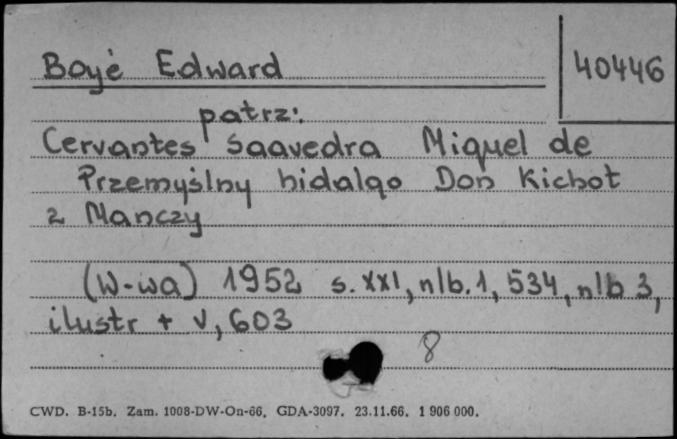 Boyé Edward
40446
patrz:
Cervantes Saavedra Miquel de
Przemyślny hidalgo Don Kichot
z Manczy
(W-wa) 1952 s. XXI, nlb. 1, 534, nlb 3,
ilustr + V, 603
8
CWD. B-15b. Zam. 1008-DW-On-66. GDA-3097. 23.11.66. 1 906 000.